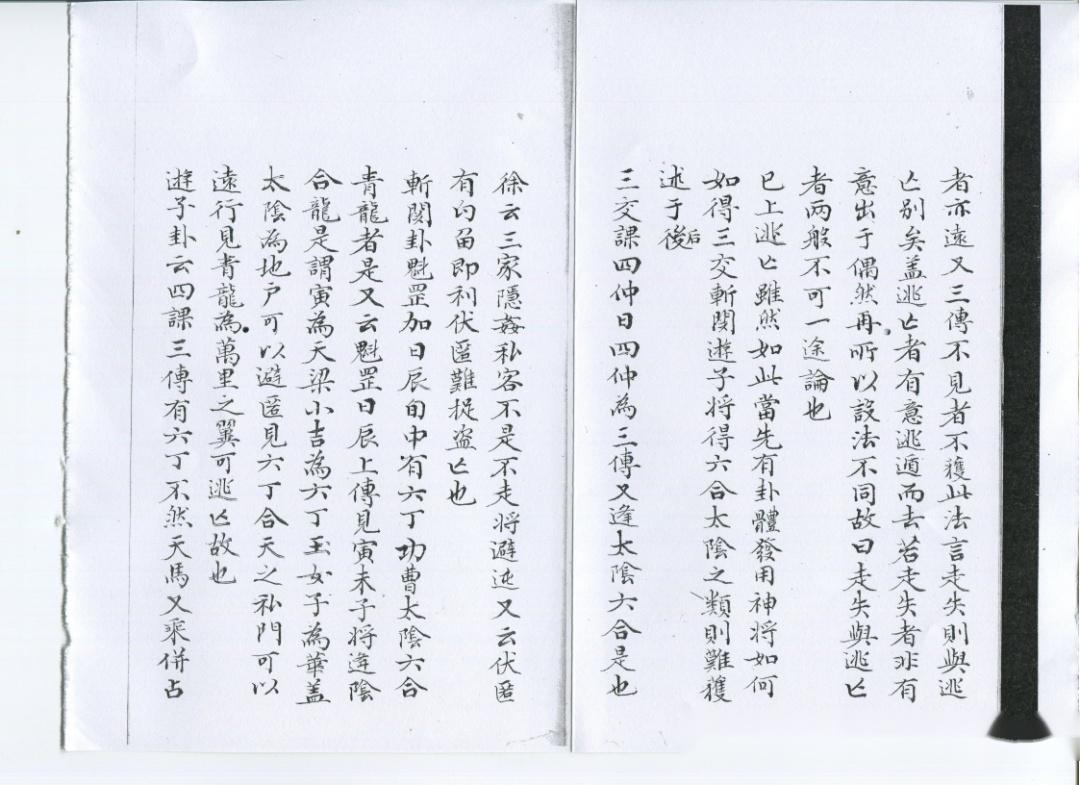 者亦遠又三傳不見者不獲此法言走失則與逃
亡别矣盖逃亡者有意逃遁而去若走失者非有
意出于偶然再所以設法不同故曰走失與逃亡
者两般不可一途論也
已上逃亡雖然如此當先有卦體發用神將如何
如得三交斬関遊子將得六合太陰之類則難獲
述于後后
三交課四仲日四仲為三傳又逢太陰六合是也
徐云三家隱姦私客不是不走將避迍又云伏匿
有勾留即利伏匿難捉盗亡也
斬関卦魁罡加日辰旬中有六丁功曹太陰六合
青龍者是又云魁罡日辰上傳見寅未子將逢陰
合龍是謂寅為天梁小吉為六丁玉女子為華盖
太陰為地户可以避匿見六丁合天之私門可以
遠行見青龍為萬里之翼可逃亡故也
遊子卦云四課三傳有六丁不然天馬又乘併占